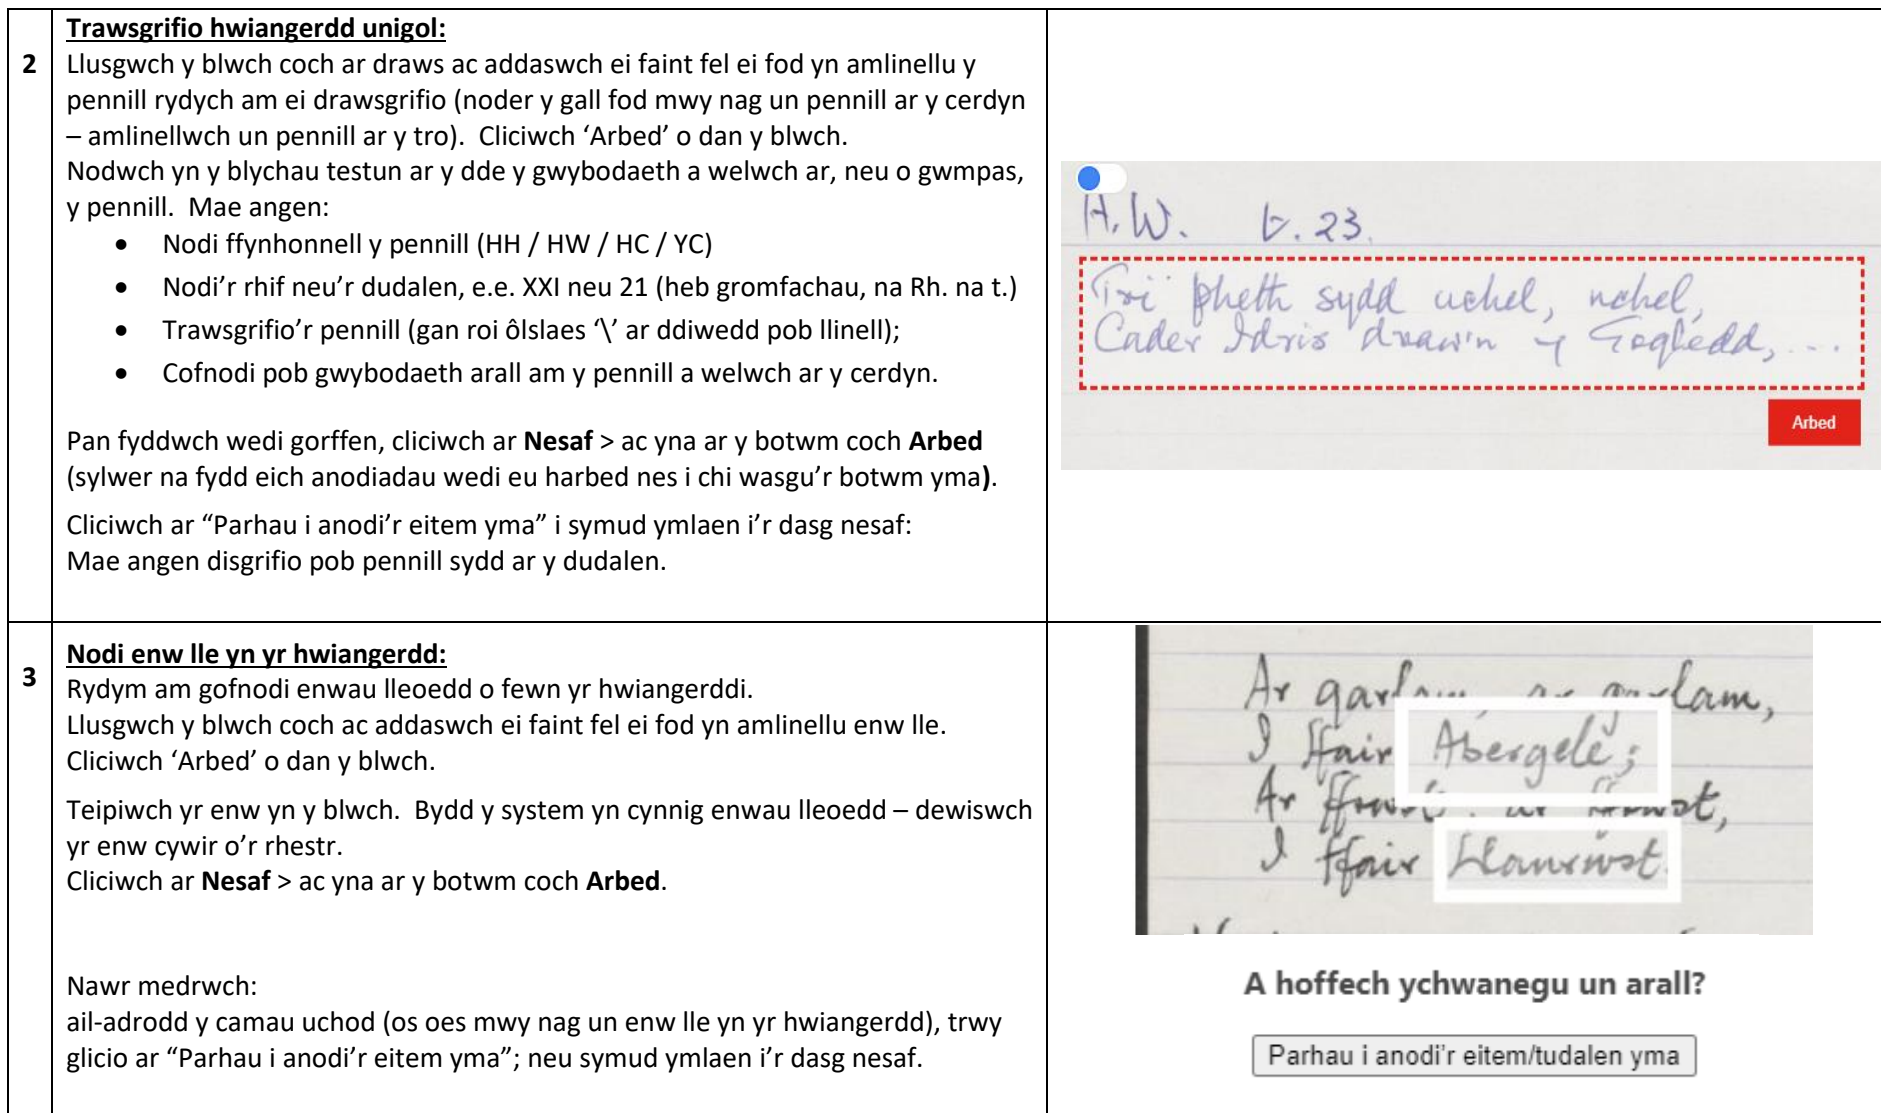 2
Trawsgrifio hwiangerdd unigol:
Llusgwch y blwch coch ar draws ac addaswch ei faint fel ei fod yn amlinellu y
pennill rydych am ei drawsgrifio (noder y gall fod mwy nag un pennill ar y cerdyn
– amlinellwch un pennill ar y tro). Cliciwch ‘Arbed’ o dan y blwch.
Nodwch yn y blychau testun ar y dde y gwybodaeth a welwch ar, neu o gwmpas,
y pennill. Mae angen:
• Nodi ffynhonnell y pennill (HH / HW / HC / YC)
• Nodi’r rhif neu’r dudalen, e.e. XXI neu 21 (heb gromfachau, na Rh. na t.)
• Trawsgrifio’r pennill (gan roi ôlslaes ‘\’ ar ddiwedd pob llinell);
• Cofnodi pob gwybodaeth arall am y pennill a welwch ar y cerdyn.
Pan fyddwch wedi gorffen, cliciwch ar Nesaf > ac yna ar y botwm coch Arbed
(sylwer na fydd eich anodiadau wedi eu harbed nes i chi wasgu’r botwm yma).
Cliciwch ar “Parhau i anodi’r eitem yma” i symud ymlaen i’r dasg nesaf:
Mae angen disgrifio pob pennill sydd ar y dudalen.
H.W. t. 23.
Tri pheth sydd uchel, uchel,
Cader Idris draw'n y Gogledd, ...
Arbed
3
Nodi enw lle yn yr hwiangerdd:
Rydym am gofnodi enwau lleoedd o fewn yr hwiangerddi.
Llusgwch y blwch coch ac addaswch ei faint fel ei fod yn amlinellu enw lle.
Cliciwch ‘Arbed’ o dan y blwch.
Teipiwch yr enw yn y blwch. Bydd y system yn cynnig enwau lleoedd – dewiswch
yr enw cywir o’r rhestr.
Cliciwch ar Nesaf > ac yna ar y botwm coch Arbed.
Nawr medrwch:
ail-adrodd y camau uchod (os oes mwy nag un enw lle yn yr hwiangerdd), trwy
glicio ar “Parhau i anodi’r eitem yma”; neu symud ymlaen i’r dasg nesaf.
Ar garlam, ar garlam,
I ffair Abergele;
Ar ffrwst, ar ffrwst,
I ffair Llanrwst.
A hoffech ychwanegu un arall?
Parhau i anodi’r eitem/tudalen yma